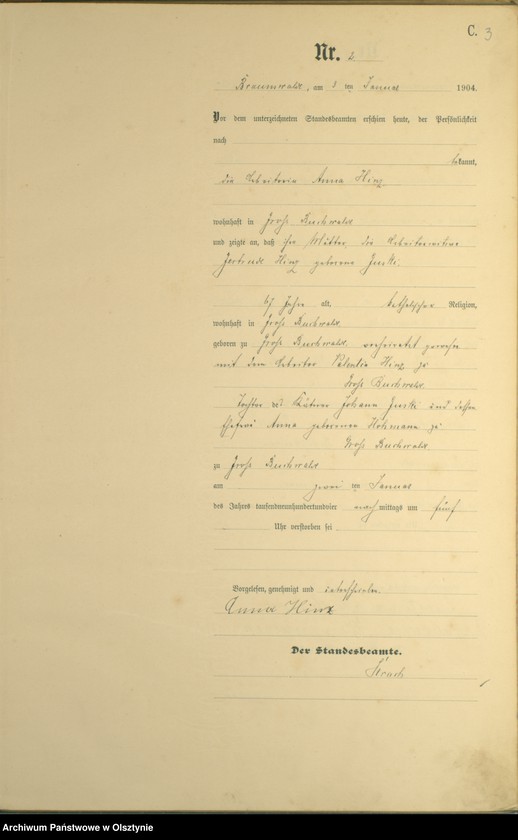 C. 3
Nr. 2
Braunswalde, am 3 ten Januar 1904.
Vor dem unterzeichneten Standesbeamten erschien heute, der Persönlichkeit
nach
bekannt,
die Arbeiterin Anna Hinz
wohnhaft in Groß Buchwalde
und zeigte an, daß ihre Mutter, die Arbeiterwitwe
Gertrude Hinz geborene
67 Jahre alt, katholischer Religion,
wohnhaft in Groß Buchwalde
geboren zu Groß Buchwalde, verheiratet gewesen
mit dem Arbeiter Valentin Hinz zu
Groß Buchwalde
Tochter des Kätner Johann und dessen
Ehefrau Anna geborenen Hohmann zu
Groß Buchwalde
zu Groß Buchwalde
am zwei ten Januar
des Jahres tausendneunhundertundvier nach mittags um fünf
Uhr verstorben sei
Vorgelesen, genehmigt und unterschrieben
Anna Hinz
Der Standesbeamte.
Archiwum Państwowe w Olsztynie